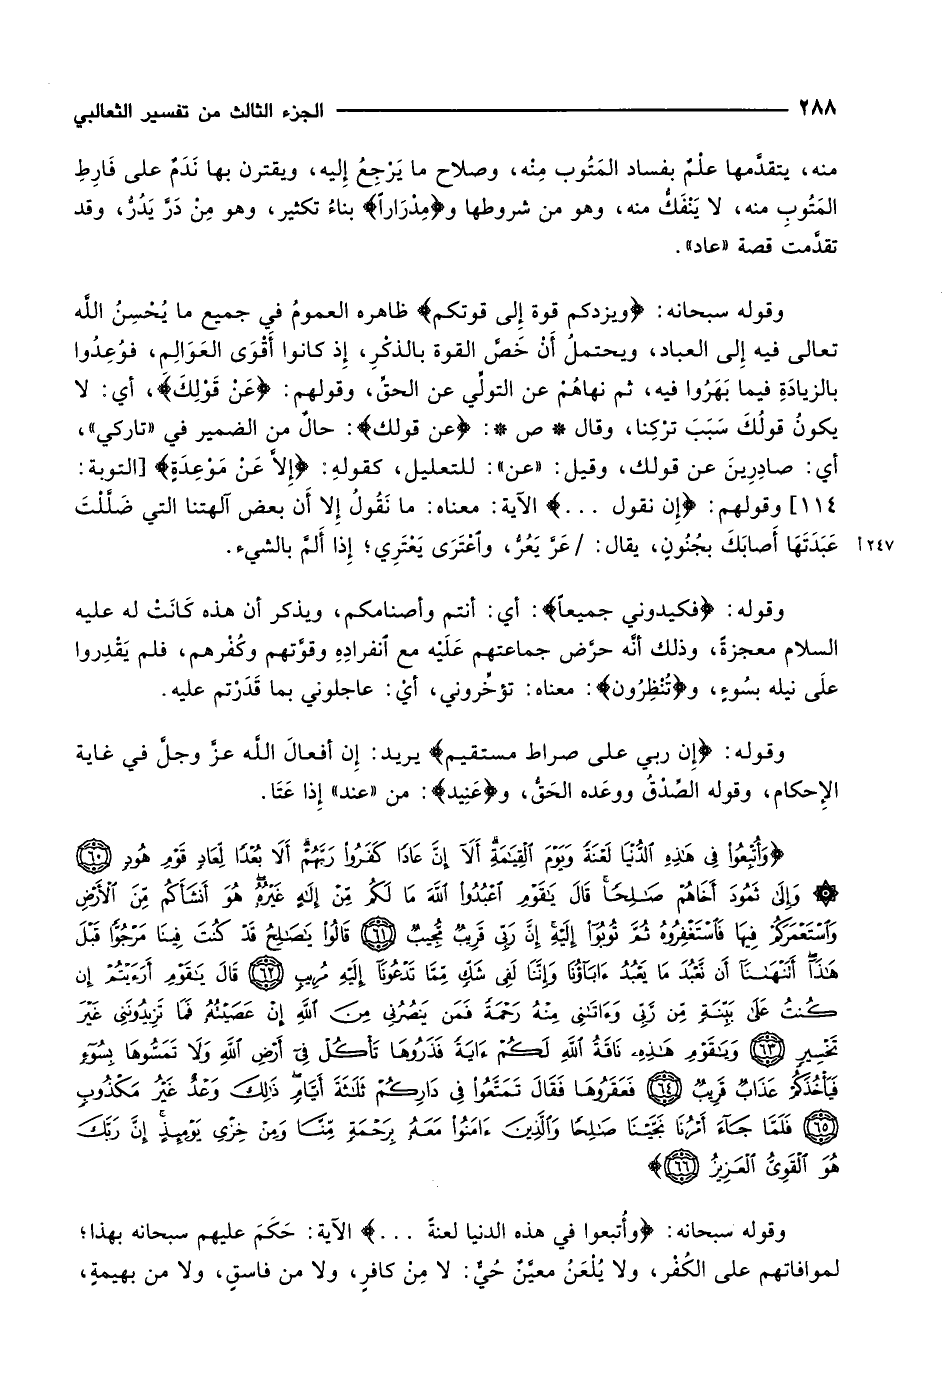 ٢٨٨ الجزء الثالث من تفسير الثعالبي
منه، يتقدَّمها علْمٌ بفساد المَتُوب مِنْه، وصلاح ما يَرْجِعُ إِليه، ويقترن بها نَدَمٌ على فَارِطِ
المَتُوبِ منه، لا يَنْفَكُّ منه، وهو من شروطها و﴿مِدْرَاراً﴾ بناءُ تكثير، وهو مِنْ دَرَّ يَدُرُّ، وقد
تقدَّمت قصة «عاد».
وقوله سبحانه: ﴿ويزدكم قوة إِلى قوتكم﴾ ظاهره العمومُ في جميع ما يُحْسِنُ اللَّه
تعالى فيه إِلى العباد، ويحتملُ أَنْ خَصَّ القوة بالذكْرِ، إِذ كانوا أَقْوَى العَوَالِم، فوُعِدُوا
بالزيادَةِ فيما بَهَرُوا فيه، ثم نهاهُمْ عن التولِّي عن الحقِّ، وقولهم: ﴿عَنْ قَوْلِكَ﴾، أي: لا
يكونُ قولُكَ سَبَبَ ترْكِنا، وقال * ص *: ﴿عن قولك﴾: حالٌ من الضمير في «تاركي»،
أي: صادِرِينَ عن قولك، وقيل: «عن»: للتعليل، كقولهِ: ﴿إِلاَّ عَنْ مَوْعِدَةٍ﴾ [التوبة:
١١٤] وقولهم: ﴿إِن نقول ...﴾ الآية: معناه: ما نَقُولُ إِلا أَن بعض آلهتنا التي ضَلَّلْتَ
٢٤٧ أ عَبَدَتَهَا أَصابَكَ بجُنُونٍ، يقال: / عَرَّ يَعُرُّ، وٱعْتَرَى يَعْتَرِي؛ إِذا أَلمَّ بالشيء.
وقوله: ﴿فكيدوني جميعاً﴾: أي: أنتم وأصنامكم، ويذكر أن هذه كَانَتْ له عليه
السلام معجزةً، وذلك أنَّه حرَّض جماعتهم عَلَيْه مع ٱنفرادِهِ وقوَّتهم وكُفْرهم، فلم يَقْدِروا
علَى نيله بسُوءٍ، و﴿تُنْظِرُون﴾: معناه: تؤخِّروني، أيْ: عاجلوني بما قَدَرْتم عليه.
وقوله: ﴿إِن ربي على صراط مستقيم﴾ يريد: إِن أفعالَ اللَّه عزَّ وجلَّ في غاية
الإِحكام، وقوله الصِّدْقُ ووعَده الحَقُّ، و﴿عَنِيد﴾: من «عند» إِذا عَتَا.
﴿وَأُتْبِعُواْ فِي هَـٰذِهِ ٱلدُّنْيَا لَعْنَةً وَيَوْمَ ٱلْقِيَـٰمَةِ أَلَآ إِنَّ عَادًا كَفَرُواْ رَبَّهُمْ أَلَا بُعْدًا لِّعَادٍ قَوْمِ هُودٍ ٦٠
۞ وَإِلَىٰ ثَمُودَ أَخَاهُمْ صَـٰلِحًا قَالَ يَـٰقَوْمِ ٱعْبُدُواْ ٱللَّهَ مَا لَكُم مِّنْ إِلَـٰهٍ غَيْرُهُ هُوَ أَنشَأَكُم مِّنَ ٱلْأَرْضِ
وَٱسْتَعْمَرَكُمْ فِيهَا فَٱسْتَغْفِرُوهُ ثُمَّ تُوبُوٓاْ إِلَيْهِ إِنَّ رَبِّي قَرِيبٌ مُّجِيبٌ ٦١ قَالُواْ يَـٰصَـٰلِحُ قَدْ كُنتَ فِينَا مَرْجُوًّا قَبْلَ
هَـٰذَآ أَتَنْهَـٰنَآ أَن نَّعْبُدَ مَا يَعْبُدُ ءَابَآؤُنَا وَإِنَّنَا لَفِي شَكٍّ مِّمَّا تَدْعُونَآ إِلَيْهِ مُرِيبٍ ٦٢ قَالَ يَـٰقَوْمِ أَرَءَيْتُمْ إِن
كُنتُ عَلَىٰ بَيِّنَةٍ مِّن رَّبِّي وَءَاتَـٰنِي مِنْهُ رَحْمَةً فَمَن يَنصُرُنِي مِنَ ٱللَّهِ إِنْ عَصَيْتُهُ فَمَا تَزِيدُونَنِي غَيْرَ
تَخْسِيرٍ ٦٣ وَيَـٰقَوْمِ هَـٰذِهِۦ نَاقَةُ ٱللَّهِ لَكُمْ ءَايَةً فَذَرُوهَا تَأْكُلْ فِيٓ أَرْضِ ٱللَّهِ وَلَا تَمَسُّوهَا بِسُوٓءٍ
فَيَأْخُذَكُمْ عَذَابٌ قَرِيبٌ ٦٤ فَعَقَرُوهَا فَقَالَ تَمَتَّعُواْ فِي دَارِكُمْ ثَلَـٰثَةَ أَيَّامٍ ذَٰلِكَ وَعْدٌ غَيْرُ مَكْذُوبٍ
٦٥ فَلَمَّا جَآءَ أَمْرُنَا نَجَّيْنَا صَـٰلِحًا وَٱلَّذِينَ ءَامَنُواْ مَعَهُ بِرَحْمَةٍ مِّنَّا وَمِنْ خِزْيِ يَوْمِئِذٍ إِنَّ رَبَّكَ
هُوَ ٱلْقَوِيُّ ٱلْعَزِيزُ ٦٦﴾
وقوله سبحانه: ﴿وأُتبعوا في هذه الدنيا لعنةً ...﴾ الآية: حَكَمَ عليهم سبحانه بهذا؛
لموافاتهم على الكُفْر، ولا يُلْعَنُ معيَّنٌ حُيٌّ: لا مِنْ كافرٍ، ولا من فاسقٍ، ولا من بهيمةٍ،